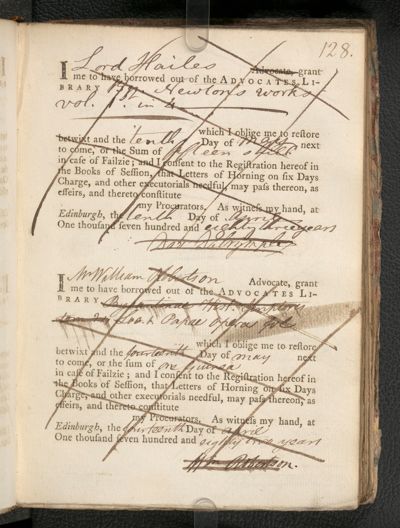 128.
I Lord Hailes Advocate, grant
me to have borrowed out of the ADVOCATES LI-
BRARY Newtons works
vol. 1. in 4
which I oblige me to reſtore
betwixt and the tenth Day of May next
to come, or the Sum of fifteen
in caſe of Failzie; and I conſent to the Regiſtration hereof in
the Books of Seſſion, that Letters of Horning on ſix Days
Charge, and other executorials needful, may paſs thereon, as
effeirs, and thereto conſtitute
my Procurators. As witneſs my hand, at
Edinburgh, the tenth Day of April
One thouſand ſeven hundred and eighty three years
Dav Dalrymple
I Mr William Robertson Advocate, grant
me to have borrowed out of the ADVOCATES LI-
BRARY Hist.
Opera
which I oblige me to reſtore
betwixt and the fourteenth Day of May next
to come, or the ſum of one guinea
in caſe of Failzie; and I conſent to the Regiſtration hereof in
the Books of Seſſion, that Letters of Horning on ſix Days
Charge, and other executorials needful, may paſs thereon, as
effeirs, and thereto conſtitute
my Procurators. As witneſs my hand, at
Edinburgh, the fourteenth Day of April
One thouſand ſeven hundred and eighty years
Wm Robertson.